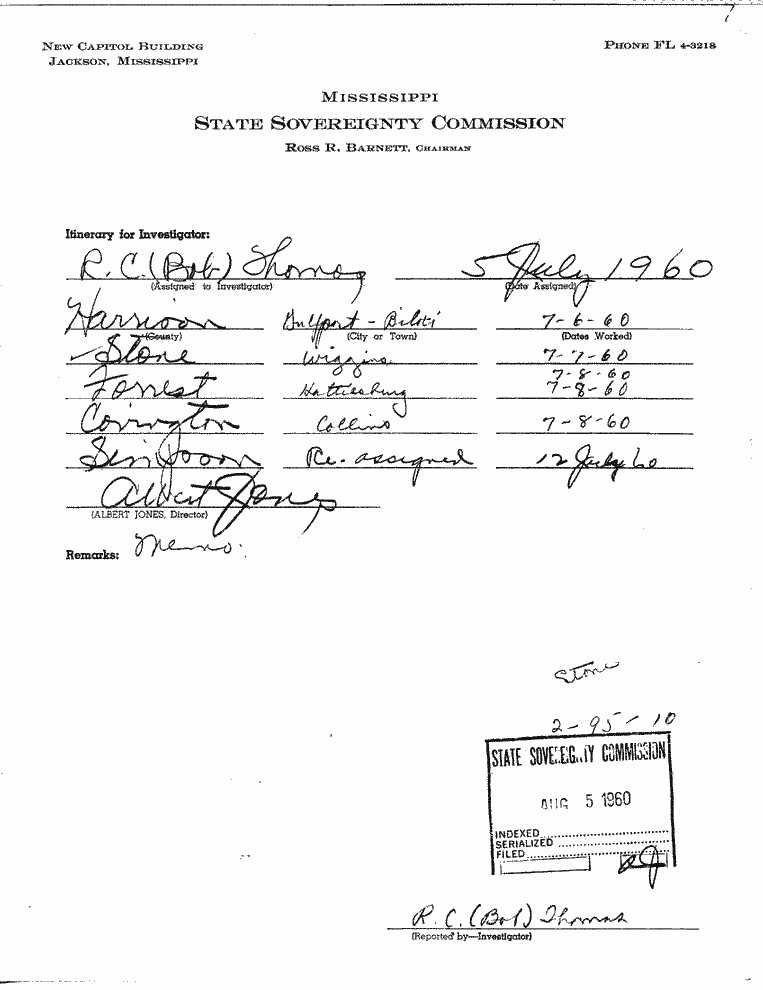 NEW CAPITOL BUILDING
JACKSON, MISSISSIPPI
PHONE FL 4-3218
MISSISSIPPI
STATE SOVEREIGNTY COMMISSION
ROSS R. BARNETT, CHAIRMAN
Itinerary for Investigator:
R. C. (Bob) Thomas 5 July 1960
(Assigned to Investigator) (Date Assigned)
Harrison Gulfport - Biloxi 7-6-60
(County) (City or Town) (Dates Worked)
Stone Wiggins 7-7-60
7-8-60
Forrest Hattiesburg 7-8-60
Covington Collins 7-8-60
Simpson Re-assigned 12 July 60
Albert Jones
(ALBERT JONES, Director)
Remarks: Memo.
Stone
2-95-10
STATE SOVEREIGNTY COMMISSION
AUG 5 1960
INDEXED
SERIALIZED
FILED
R. C. (Bob) Thomas
(Reported by—Investigator)